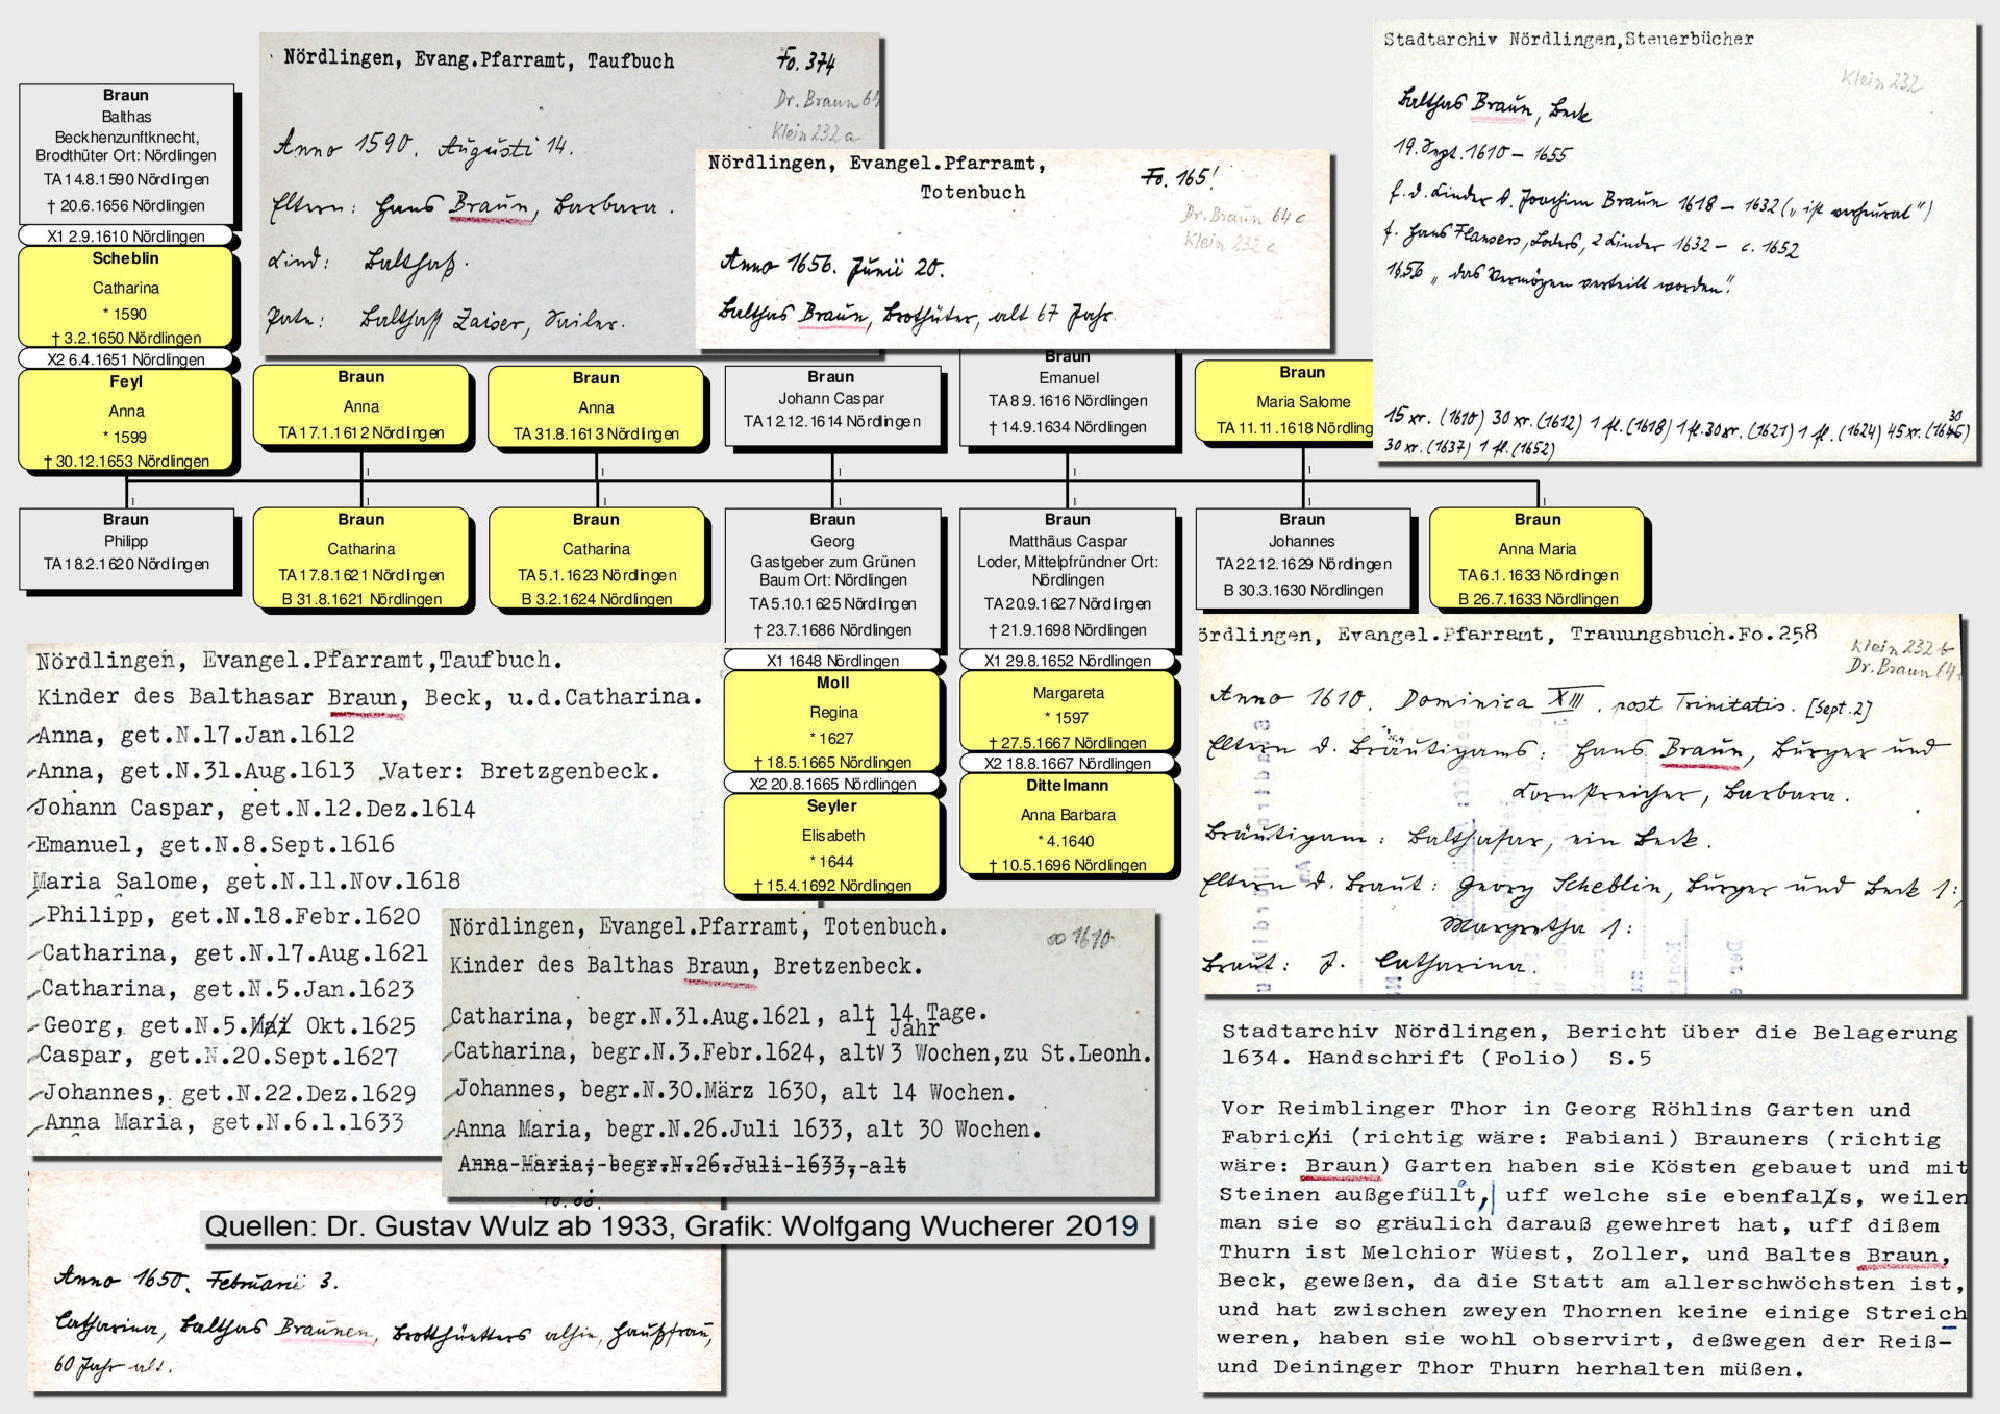 Braun
Balthas
Beckhenzunftknecht,
Brodthüter Ort: Nördlingen
TA 14.8.1590 Nördlingen
† 20.6.1656 Nördlingen
X1 2.9.1610 Nördlingen
Scheblin
Catharina
* 1590
† 3.2.1650 Nördlingen
X2 6.4.1651 Nördlingen
Feyl
Anna
* 1599
† 30.12.1653 Nördlingen
Nördlingen, Evang.Pfarramt, Taufbuch
Fo. 374
Dr. Braun 64
Klein 232 a
Anno 1590. Augusti 14.
Eltern: Hans Braun, Barbara.
Kind: Balthaß.
Pate: Balthaß Zaiser, Seiler.
Nördlingen, Evangel.Pfarramt,
Totenbuch
Fo. 165!
Dr. Braun 64 c
Klein 232 c
Anno 1656. Junii 20.
Balthas Braun, Brothüter, alt 67 Jahr.
Stadtarchiv Nördlingen,Steuerbücher
Klein 232
Balthas Braun, Beck
19. Sept. 1610 – 1655
f. d. Kinder d. Joachim Braun 1618 – 1632 („ist verheurat")
f. Hans Flansers, Loders, 2 Kinder 1632 – c. 1652
1656 „das Vermögen verteilt worden".
15 xr. (1610) 30 xr. (1612) 1 fl. (1618) 1 fl. 30 xr. (1621) 1 fl. (1624) 45 xr.
30 xr. (1637) 1 fl. (1652)
Braun
Anna
TA 17.1.1612 Nördlingen
Braun
Anna
TA 31.8.1613 Nördlingen
Braun
Johann Caspar
TA 12.12.1614 Nördlingen
Braun
Emanuel
TA 8.9.1616 Nördlingen
† 14.9.1634 Nördlingen
Braun
Maria Salome
TA 11.11.1618 Nördling
Braun
Philipp
TA 18.2.1620 Nördlingen
Braun
Catharina
TA 17.8.1621 Nördlingen
B 31.8.1621 Nördlingen
Braun
Catharina
TA 5.1.1623 Nördlingen
B 3.2.1624 Nördlingen
Braun
Georg
Gastgeber zum Grünen
Baum Ort: Nördlingen
TA 5.10.1625 Nördlingen
† 23.7.1686 Nördlingen
X1 1648 Nördlingen
Moll
Regina
* 1627
† 18.5.1665 Nördlingen
X2 20.8.1665 Nördlingen
Seyler
Elisabeth
* 1644
† 15.4.1692 Nördlingen
Braun
Matthäus Caspar
Loder, Mittelpfründner Ort:
Nördlingen
TA 20.9.1627 Nördlingen
† 21.9.1698 Nördlingen
X1 29.8.1652 Nördlingen
Margareta
* 1597
† 27.5.1667 Nördlingen
X2 18.8.1667 Nördlingen
Dittelmann
Anna Barbara
* 4.1640
† 10.5.1696 Nördlingen
Braun
Johannes
TA 22.12.1629 Nördlingen
B 30.3.1630 Nördlingen
Braun
Anna Maria
TA 6.1.1633 Nördlingen
B 26.7.1633 Nördlingen
Nördlingen, Evangel.Pfarramt,Taufbuch.
Kinder des Balthasar Braun, Beck, u.d.Catharina.
Anna, get.N.17.Jan.1612
Anna, get.N.31.Aug.1613 Vater: Bretzgenbeck.
Johann Caspar, get.N.12.Dez.1614
Emanuel, get.N.8.Sept.1616
Maria Salome, get.N.11.Nov.1618
Philipp, get.N.18.Febr.1620
Catharina, get.N.17.Aug.1621
Catharina, get.N.5.Jan.1623
Georg, get.N.5.Mai Okt.1625
Caspar, get.N.20.Sept.1627
Johannes, get.N.22.Dez.1629
Anna Maria, get.N.6.1.1633
Nördlingen, Evangel.Pfarramt, Totenbuch.
∞ 1610
Kinder des Balthas Braun, Bretzenbeck.
Catharina, begr.N.31.Aug.1621, alt 14 Tage.
1 Jahr
Catharina, begr.N.3.Febr.1624, alt 3 Wochen,zu St.Leonh.
Johannes, begr.N.30.März 1630, alt 14 Wochen.
Anna Maria, begr.N.26.Juli 1633, alt 30 Wochen.
Anna-Maria,-begr.N.26.Juli-1633,-alt
Quellen: Dr. Gustav Wulz ab 1933, Grafik: Wolfgang Wucherer 2019
Anno 1650. Februarii 3.
Catharina, Balthas Braunen, Brotthüetters alhie, Haußfrau,
60 Jahr alt.
ördlingen, Evangel.Pfarramt, Trauungsbuch.Fo.258
Klein 232 b
Dr. Braun 64
Anno 1610. Dominica XIII. post Trinitatis. [Sept. 2]
Eltern d. Bräutigams: Hans Braun, Bürger und
Kornstreicher, Barbara.
Bräutigam: Balthasar, ein Beck.
Eltern d. Braut: Georg Scheblin, Bürger und Beck
Margretha
Braut: J. Catharina.
Stadtarchiv Nördlingen, Bericht über die Belagerung
1634. Handschrift (Folio) S.5
Vor Reimblinger Thor in Georg Röhlins Garten und
Fabrici (richtig wäre: Fabiani) Brauners (richtig
wäre: Braun) Garten haben sie Kösten gebauet und mit
Steinen außgefüllt, uff welche sie ebenfals, weilen
man sie so gräulich darauß gewehret hat, uff dißem
Thurn ist Melchior Wüest, Zoller, und Baltes Braun,
Beck, geweßen, da die Statt am allerschwöchsten ist,
und hat zwischen zweyen Thornen keine einige Streich
weren, haben sie wohl observirt, deßwegen der Reiß-
und Deininger Thor Thurn herhalten müßen.